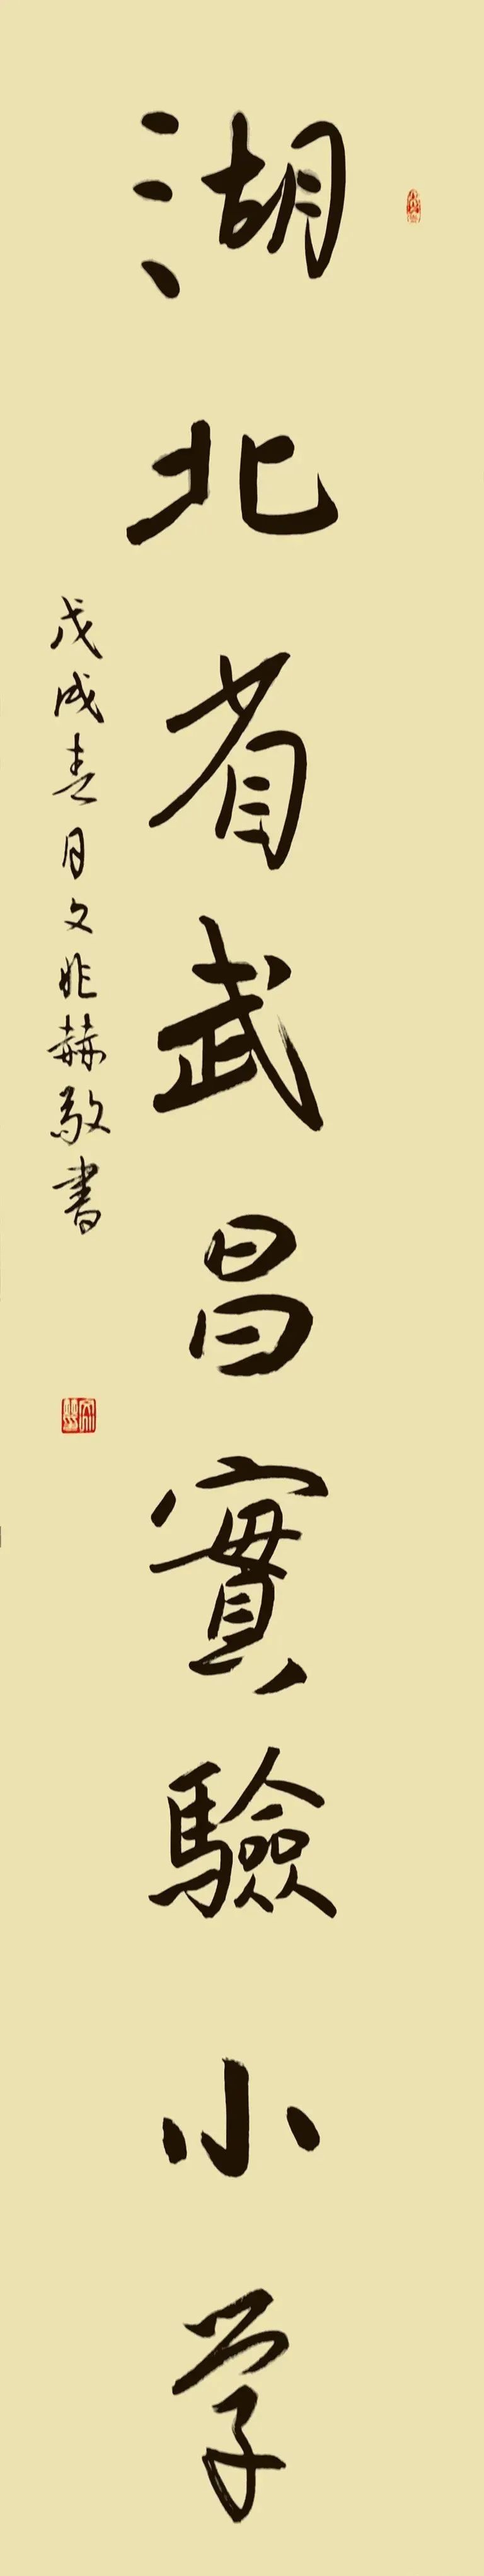 湖北省武昌實驗小学
戊戌春月文兆赫敬書